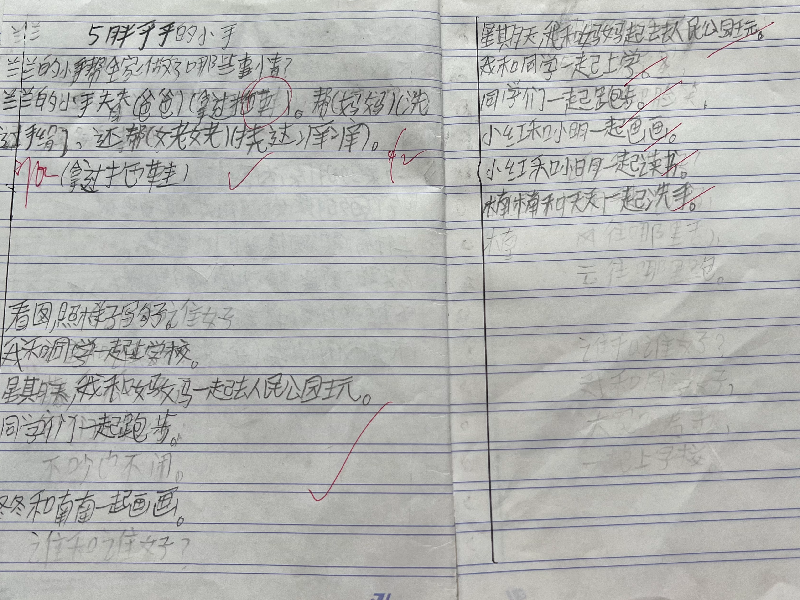 5胖乎乎的小手
兰兰的小手帮全家做了哪些事情?
兰兰的小手天天(爸爸)(拿过拖鞋)。帮(妈妈)(洗
过手绢)、还帮(姥姥)(挠过痒痒)。
(拿过拖鞋)
看图,照样子写句子。
我和同学一起上学校。
星期天,我和妈妈一起去人民公园玩。
同学们一起跑步。
不吵也不闹。
冬冬和南南一起画画。
谁和谁好?
星期天,我和妈妈一起去人民公园玩。
我和同学一起上学。
同学们一起跑步。
小红和小明一起画画。
小红和小明一起读书。
楠楠和天天一起洗手。
谁和谁好?